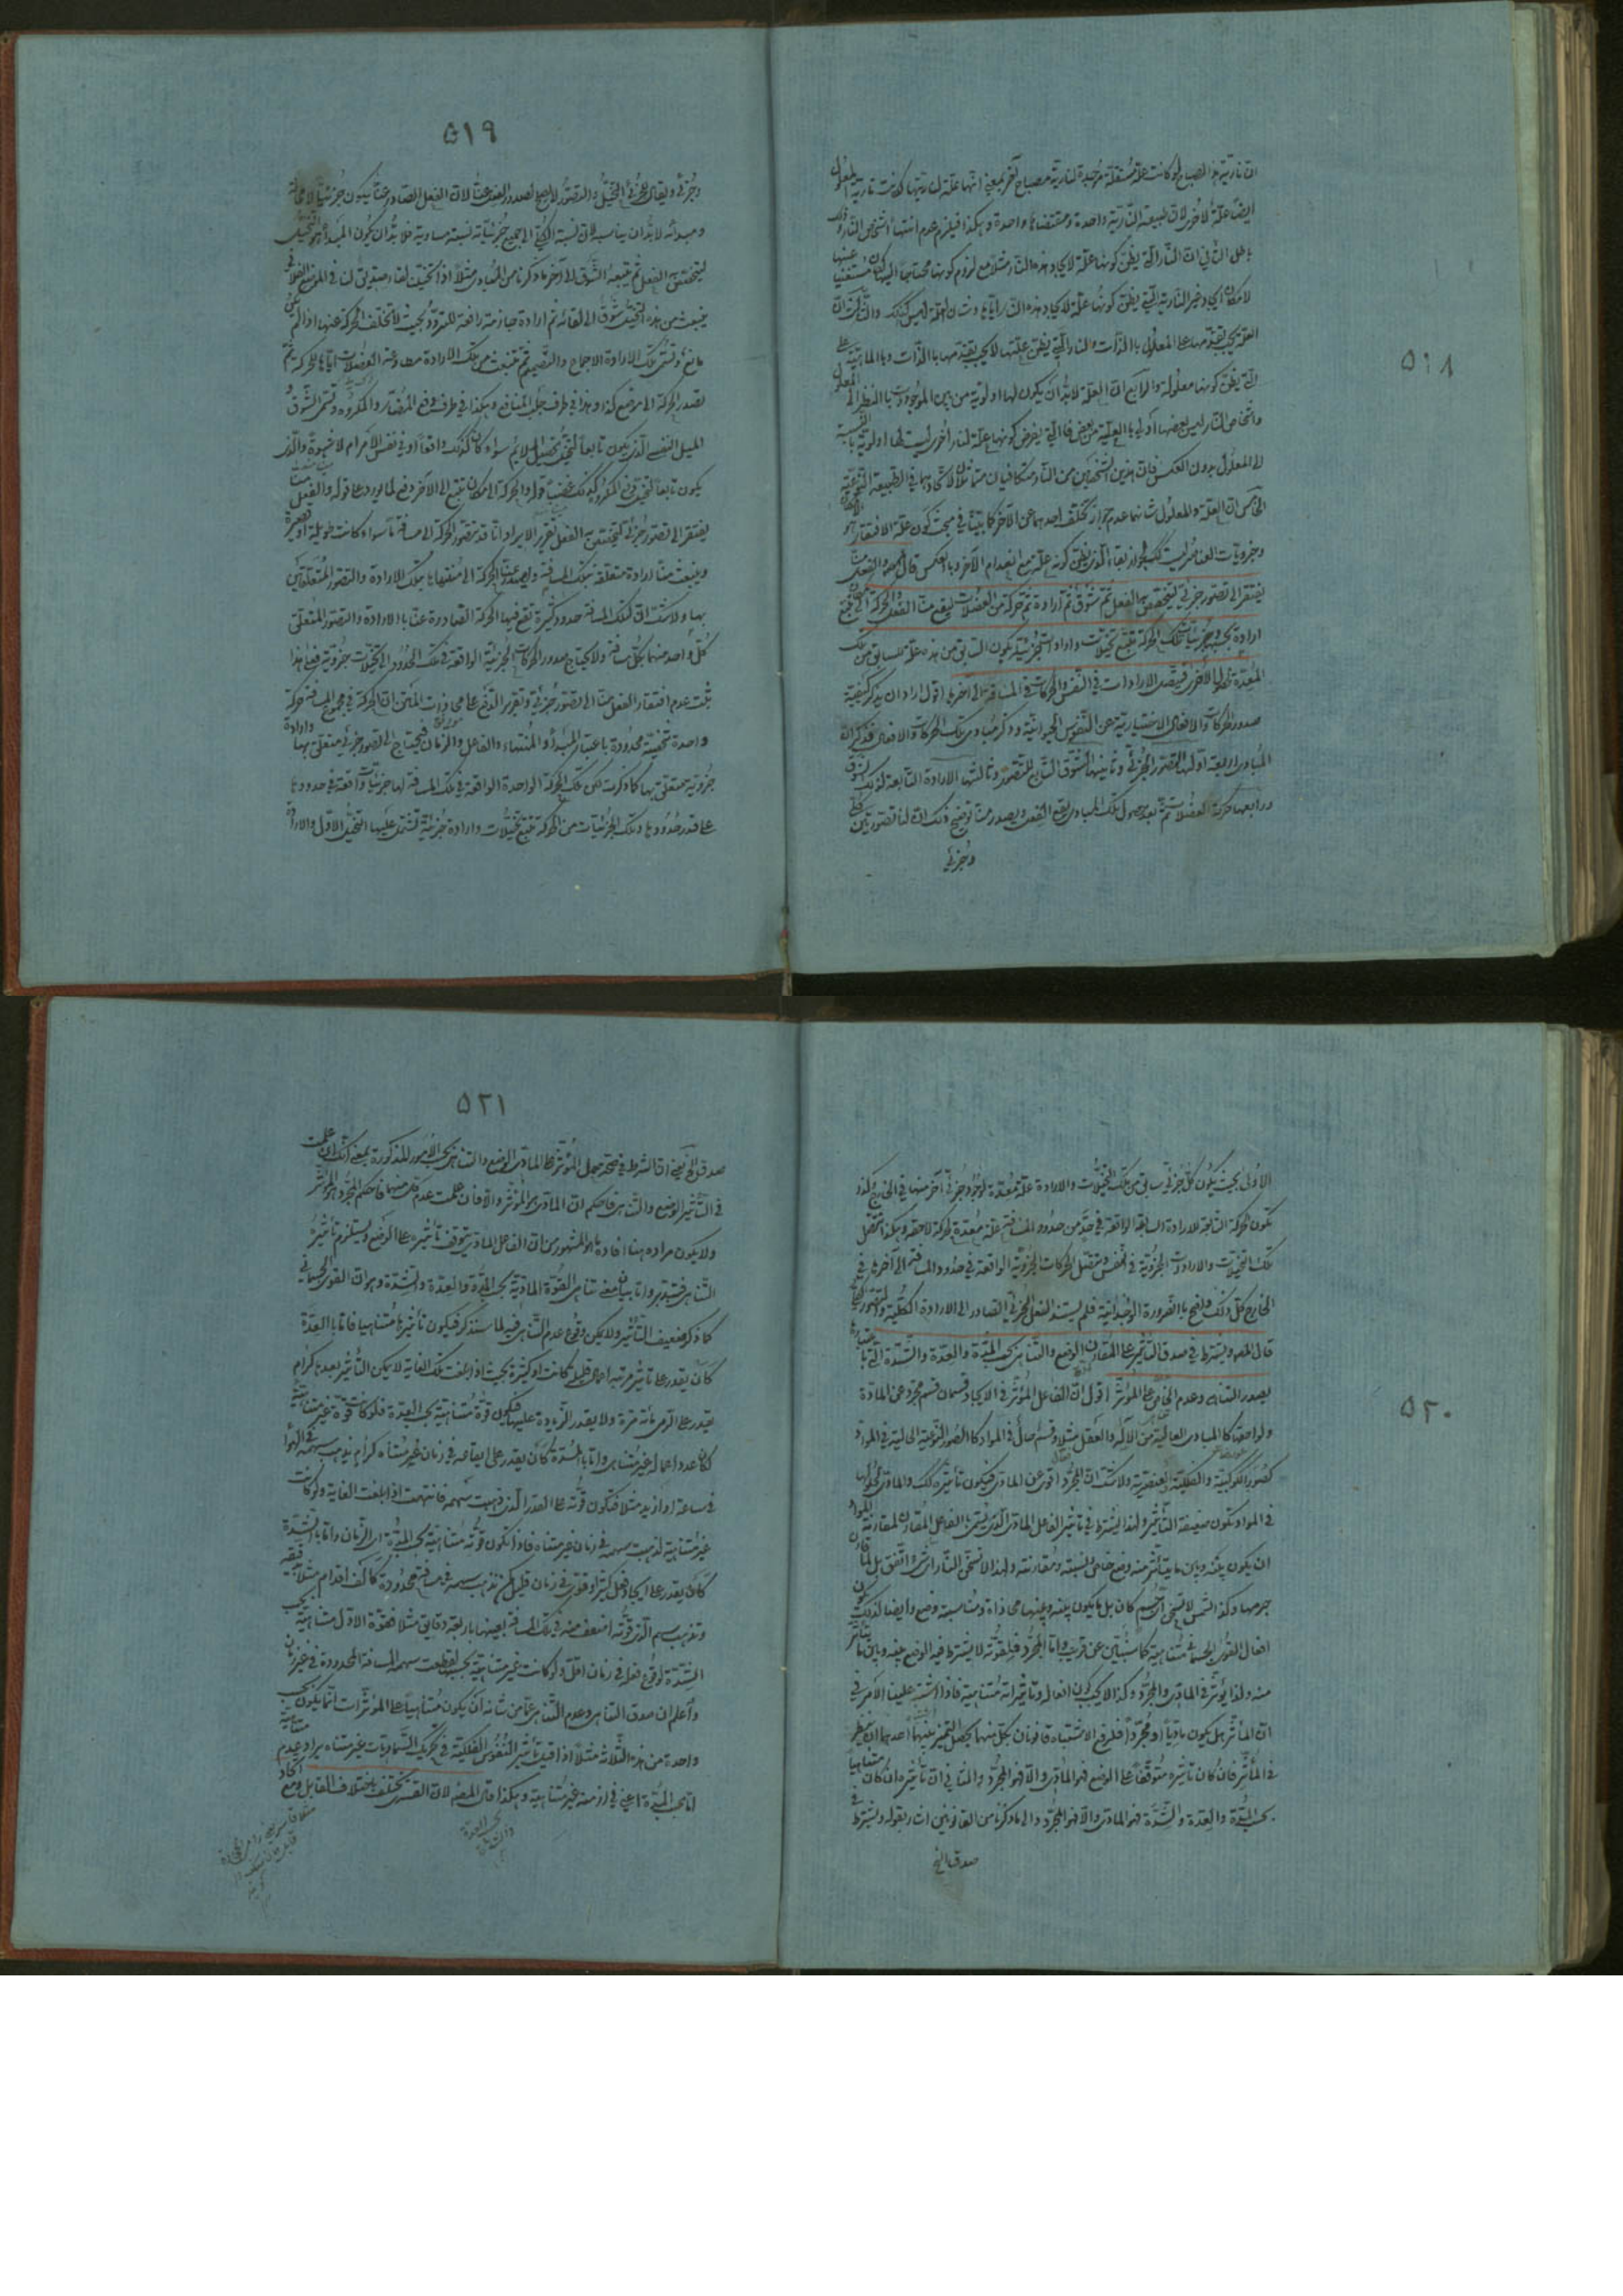 ٥١٨
ان نارية هذا المصباح لو كانت علة مستقلة موجدة لنارية مصباح آخر بمعنى انها علة لناريتها لكانت نارية المعلول
ايضا علة لاخرى لان طبيعة النارية واحدة ومقتضاها واحدة وهكذا فيلزم عدم انتهاء اشخاص النار وذلك
باطل الثاني ان النار التي يظن كونها علة لايجاد هذه النار مثلا مع لزوم كونها محتاجا اليها كان مستغنيا عنها
لامكان ايجاد غير النارية التي يظن كونها علة لايجاد هذه النار اياها وشان العلة ليس كذلك والثالث ان
العلة يجب تقدمها على المعلول بالذات والنار التي يظن علتها لا يجب تقدمها بالذات وبالماهية على
التي يظن كونها معلولة والرابع ان العلة لابد ان يكون لها اولوية من بين الموجودات بالنظر الى المعلول
واشخاص النار ليس بعضها اولى بالعلية من بعض فالتي يفرض كونها علة لنار اخرى ليست لها اولوية بالنسبة
الى المعلول بدون العكس فان هذين الشخصين من النار متكافيان متماثلان لاتحادهما في الطبيعة النوعية
الخامس ان العلة والمعلول شانهما عدم جواز تخلف احدهما عن الآخر كما بينا في مبحث كون علة الافتقار هو الامكان
وجزويات العناصر ليست كذلك لجواز بقاء الذي يظن كونه علة مع انعدام الآخر وبالعكس قال المصه والفعل منا
يفتقر الى تصور جزئي ليتخصص به الفعل ثم شوق ثم ارادة ثم حركة من العضلات ليقع منا الفعل والحركة الى مكان تتبع
ارادة بحسبها وجزئيات تلك الحركة تتبع تخيلات وارادات جزئية يكون السابق من هذه علة للسابق من تلك
المعدة لحصول اخرى فيتصل الارادات في النفس والحركات في المسافة الى آخرها اقول اراد ان يذكر كيفية
صدور الحركات والافعال الاختيارية عن النفوس الحيوانية وذكر مبادي تلك الحركات والافعال فذكر ان
المبادي اربعة اولها التصور الجزئي وثانيها الشوق التابع للتصور وثالثها الارادة التابعة لذلك الشوق
ورابعها حركة العضلات ثم بعد حصول تلك المبادي يقع الفعل ويصدر منا توضيح ذلك ان لنا تصورين كلي
وجزئي
٥١٩
وجزئي ويقال للجزئي التخيل والتصور الكلي لا يصلح لصدور الفعل عنا لان الفعل الصادر عنا يكون جزئيا لا محالة
ومبدأه لابد ان يناسبه لان نسبة الكلي الى جميع جزئياته نسبة مساوية فلابد ان يكون المبدأ هو التخيل
ليتخصص به الفعل ثم يتبعه الشوق الى آخر ما ذكرنا من المبادي مثلا اذا تخيلت لقاء صديق لنا في الموضع الفلاني
ينبعث من هذا التخيل شوق الى لقائه ثم ارادة جازمة رافعة للتردد بحيث لا تخلف الحركة عنها اذا لم يكن
مانع وتسمى تلك الارادة الاجماع والتصميم ثم تنبعث من تلك الارادة مطاوعة العضلات اياها للحركة ثم
تصدر الحركة الى موضع كذا وهذا في طرف جلب المنافع وهكذا في طرف دفع المضار والمكروه وتسمى الشوق و
الميل النفسي الذي يكون تابعا لتخيل تحصيل الملائم سواء كان كذلك واقعا او في نفس الامر ام لا شهوة والذي
يكون تابعا لتخيل دفع المكروه كذلك غضبا قوله والحركة الى مكان تتبع الى الآخر دفع لما يورد على قوله والفعل منا
يفتقر الى تصور جزئي ليتخصص به الفعل تقرير الايراد انا قد نتصور الحركة الى مسافة ما سواء كانت طويلة او قصيرة
وينبعث منا ارادة متعلقة بتلك المسافة ويصدر عنا الحركة الى منتهاها بتلك الارادة والتصور المتعلقين
بها ولا شك ان لتلك المسافة حدود كثيرة تقع فيها الحركة الصادرة عنا بالارادة والتصور المتعلق
كل واحد منهما بكل مسافة ولا يحتاج صدور الحركات الجزئية الواقعة في تلك الحدود الى تخيلات جزوية فعلى هذا
ثبت عدم افتقار الفعل منا الى تصور جزئي وتقرير الدفع على محاذات المتن ان الحركة في مجموع المسافة حركة
واحدة شخصية محدودة باعتبار المبدأ والمنتهاء والفاعل والزمان فيحتاج الى تصور جزئي متعلق بها وارادة
جزوية متعلق بها كما ذكرت لكن تلك الحركة الواحدة الواقعة في تلك المسافة لها جزئيات واقعة في حدودها
على قدر حدودها وتلك الجزئيات من الحركة تتبع تخيلات وارادة جزئية تشتمل عليها التخيل الاول والارادة
٥٢٠
الاولى بحيث يكون كل جزئي سابق من تلك التخيلات والارادة علة معدة لوجود جزئي آخر منها في الخارج كذا
تكون الحركة السابقة للارادة السابقة الواقعة في حد من حدود المسافة علة معدة لحركة لاحقة وهكذا تتصل
تلك التخيلات والارادات الجزوية في النفس وتتصل الحركات الجزوية الواقعة في حدود المسافة الى آخرها في
الخارج كل ذلك واضح بالضرورة الوجدانية فلم يستند الفعل الجزئي الصادر الى الارادة الكلية والتصور الكلي
قال المصه ويشترط في صدق التأثير على المقارن الوضع والتناهي بحسب المدة والعدة والشدة التي باعتبارها
يصدق التناهي وعدمه الخاص على المؤثر اقول ان الفاعل المؤثر في الايجاد قسمان قسم مجرد عن المادة
ولواحقها كالمبادي العالية من الاله والعقل مثلا وقسم حال في المواد كالصور النوعية الحالية في المواد
كصور الكوكبية والفلكية والعنصرية ولا شك ان المجرد اقوى عن المادي فيكون تأثيره كذلك والمادي لحلولها
في المواد يكون ضعيفة التأثير ولهذا يشترط في تأثير الفاعل المادي الذي يسمى بالفاعل المقارن لمقارنته للمواد
ان يكون بينه وبين ما يتأثر منه وضع خاص النسبة ومقارنته ولهذا لا تسخن النار اي شيء اتفق بل ما قارن
جرمها وكذا الشمس لا تسخن اي جسم كان بل ما يكون بينه وبينها محاذاة ومناسبة وضع وايضا لذلك يكون
افعال القوى الجسمانية متناهية كما سيتبين عن قريب واما المجرد فلقوته لا يشترط فيه الوضع بينه وبين ما يتأثر
منه ولذا يؤثر في المادي والمجرد وكذا لا يجب كون افعاله وتأثيراته متناهية فاذا اشتبه علينا الامر في
ان المأثر هل يكون ماديا او مجردا فلرفع الاشتباه قانونان بكل منهما يحصل التميز بينهما احدهما ان ينظر
في المأثر فان كان تأثيره متوقفا على الوضع فهو المادي والا فهو المجرد والثاني ان تأثيره ان كان متناهيا
بحسب المدة والعدة والشدة فهو المادي والا فهو المجرد والى ما ذكرنا من القانونين اشار بقوله ويشترط في
صدق الخ
٥٢١
صدق الخ يعني ان الشرط في صحة حمل المؤثر على المادي الوضع والتناهي بحسب الامور المذكورة بمعنى انك ان علمت
في التأثير الوضع والتناهي فاحكم ان المادي هو المؤثر والا فان علمت عدم كل منهما فاحكم المجرد هو المؤثر
ولا يكون مراده هنا افادة ما هو المشهور من ان الفاعل المادي يتوقف تأثيره على الوضع ويستلزم تأثيره
التناهي فتدبر واما بيان معنى تناهي القوة المادية بحسب المدة والعدة والشدة وهو ان القوى الجسماني
كما ذكر ضعيف التأثير ولا يمكن وقوع عدم التناهي فيه لما سنذكر فيكون تأثيرها متناهيا فاما بالعدة
كان يقدر على تأثير مرتبة اعمال قليلة كانت او كثيرة بحيث اذا بلغت تلك الغاية لا يمكن التأثير بعدها كرام
يقدر على الرمي مائة مرة ولا يقدر الزيادة عليها فيكون قوة متناهية بحسب العدة فلو كانت قوة غير متناهية
لكان عدد اعماله غير متناهي واما بالمدة كان يقدر على ايقاعه في زمان غير متناه كرام يذهب سهمه في الهواء
في ساعة او ازيد مثلا فتكون قوته على القدر الذي ذهبت سهمه فانتهت اذا بلغت الغاية ولو كانت
غير متناهية لذهبت سهمه في زمان غير متناه فاذا تكون قوته متناهية بحسب المدة اي الزمان واما بالشدة
كان يقدر على ايجاد فعل كثير او قوي في زمان قليل كمن تذهب سهمه في مسافة محدودة كالف اقدام مثلا بدقيقة
وتذهب سهم الذي قوته اضعف منه في تلك المسافة بعينها باربعة دقايق مثلا فقوة الاول متناهية بحسب
الشدة لوقوع فعله في زمان اقل ولو كانت غير متناهية بحسبها لقطعت سهمه المسافة المحدودة في غير زمان
واعلم ان صدق التناهي وعدم التناهي عما من شانه ان يكون متناهيا على المؤثرات انما يكون بحسب
واحدة من هذه الثلاثة مثلا اذا قيل تأثير النفوس الفلكية في تحريك السماويات غير متناه يراد عدم متناهية
اما بحسب المدة اعني في ازمنة غير متناهية وهكذا قال المصه لان القسري يختلف باختلاف القابل ومع اتحاد